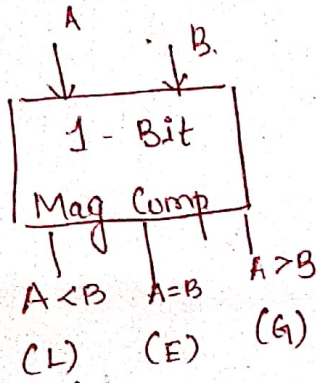 A B.
1 - Bit
Mag Comp
A<B A=B A>B
(L) (E) (G)